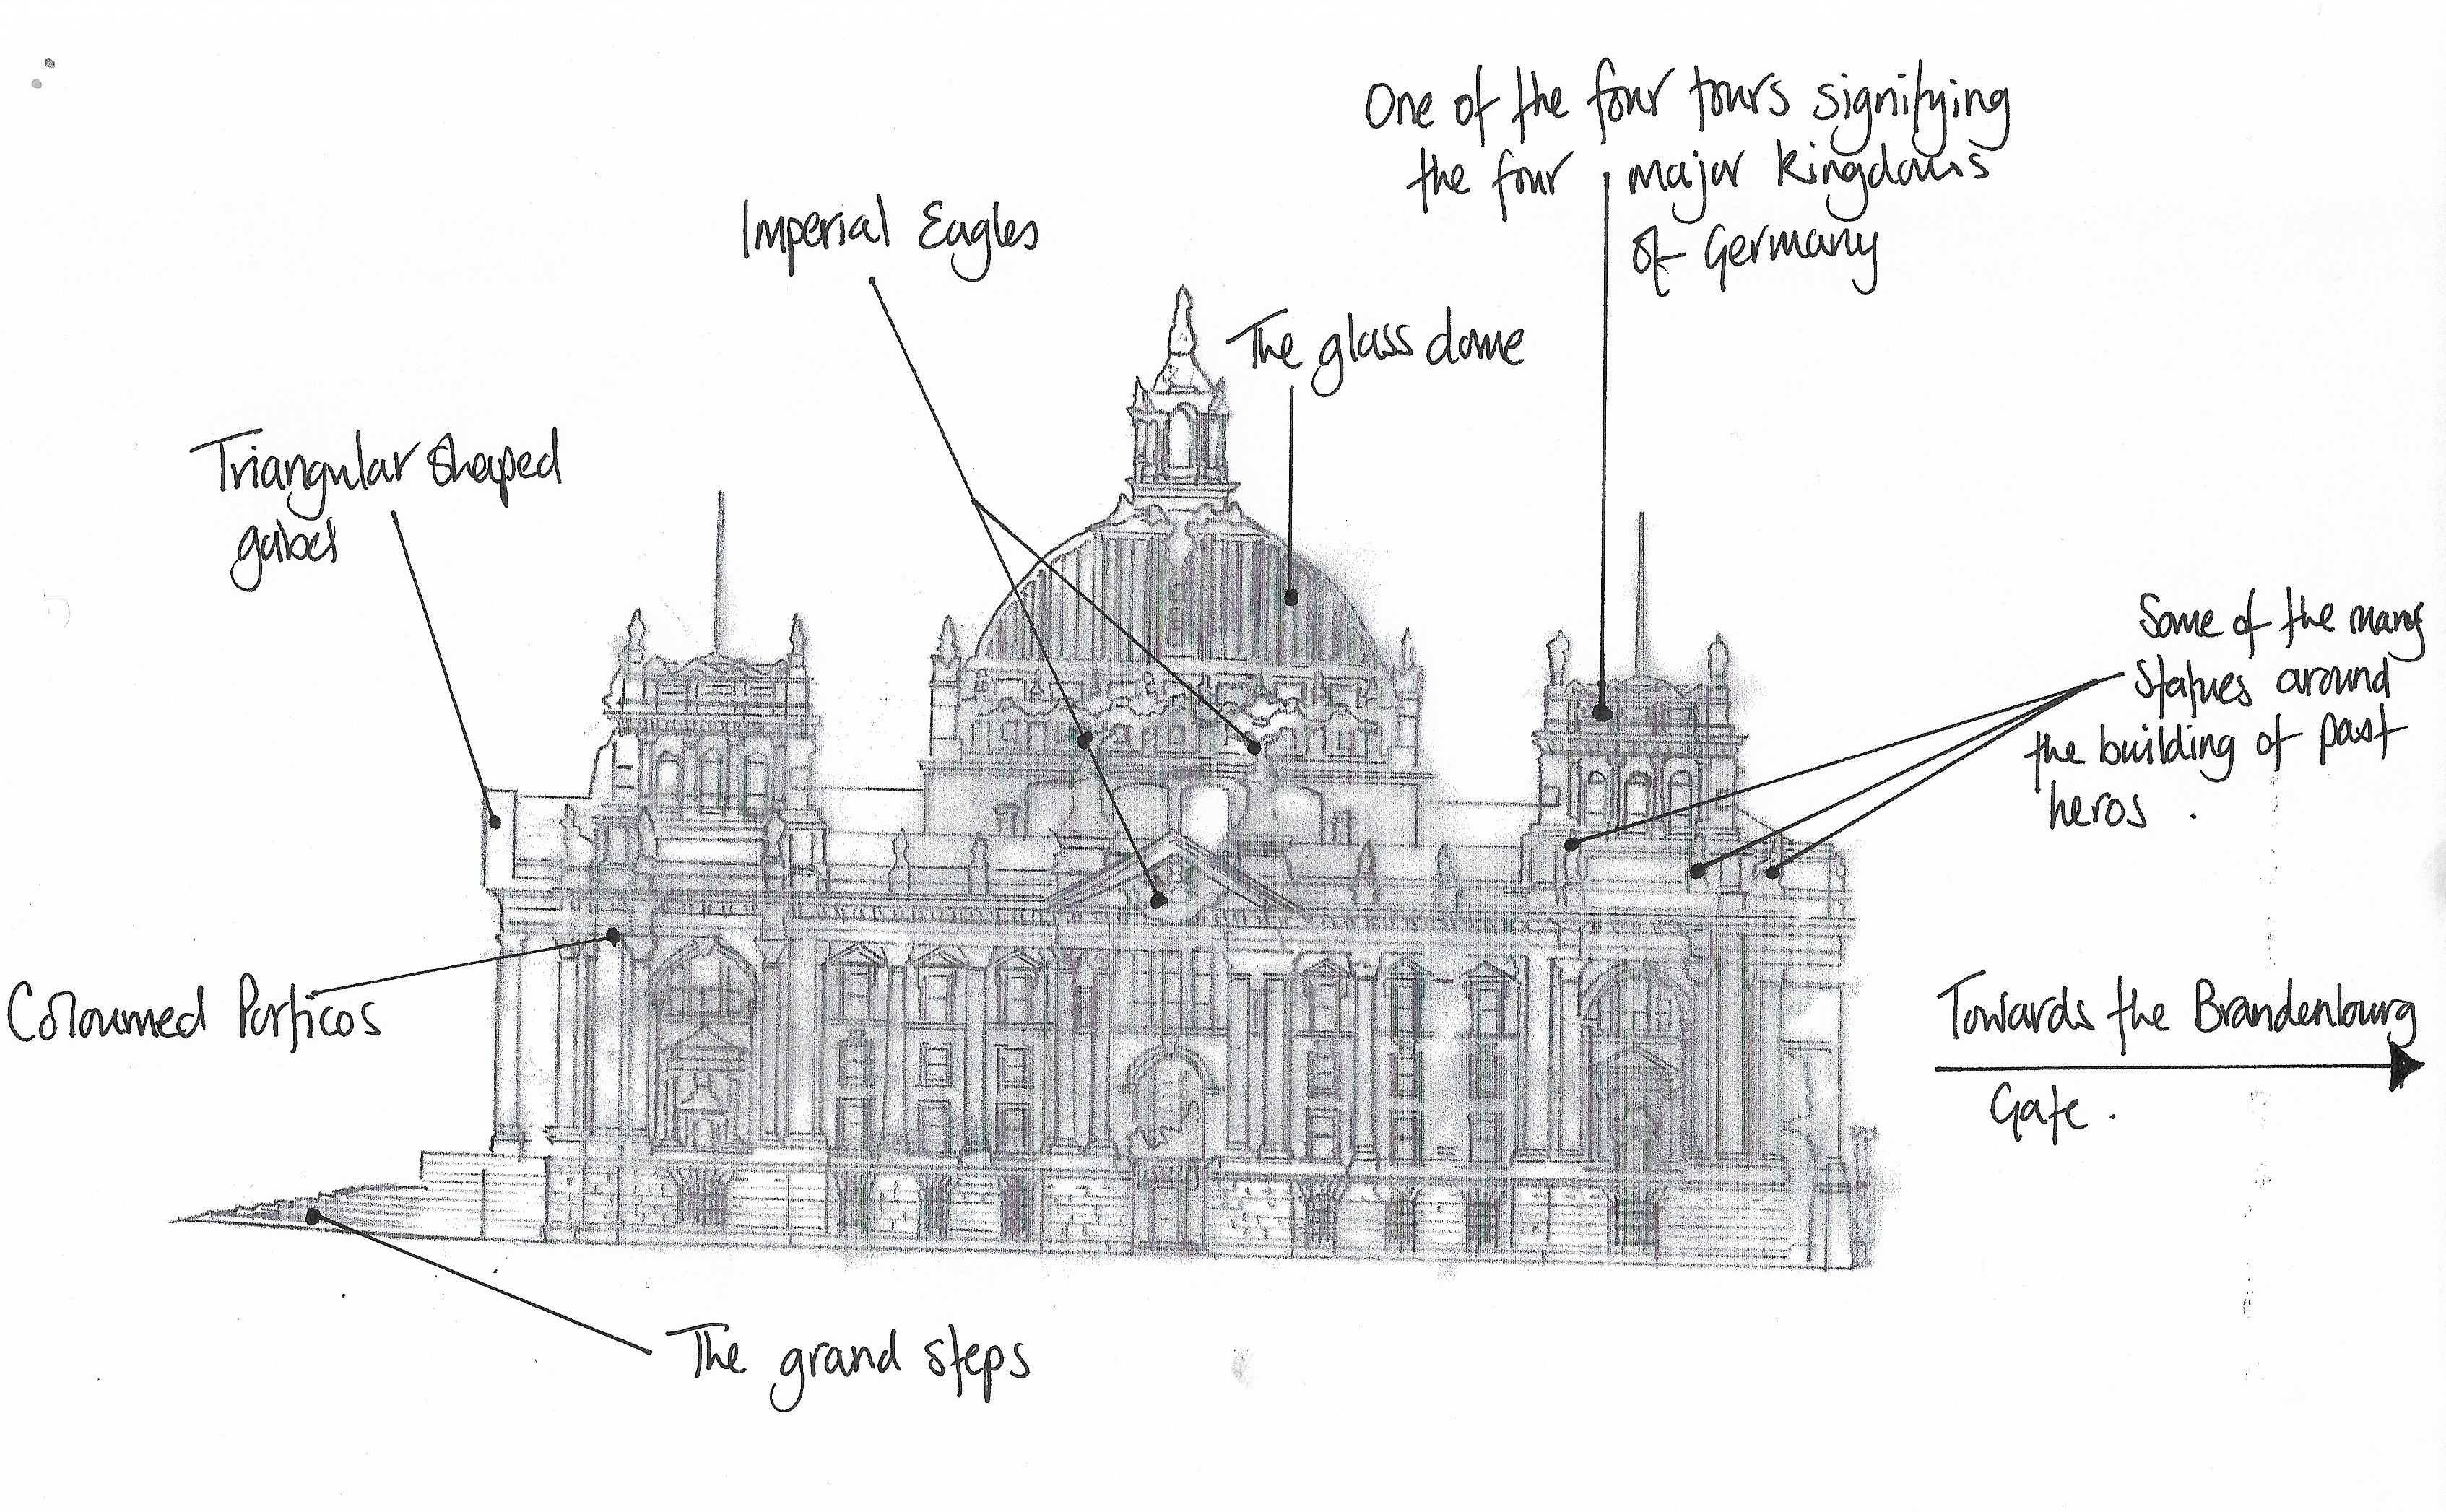 One of the four tours signifying
the four major kingdoms
of Germany
Imperial Eagles
The glass dome
Triangular shaped
gabel
Some of the many
Statues around
the building of past
heros .
Coloumed Porticos
Towards the Brandenburg
Gate .
The grand steps